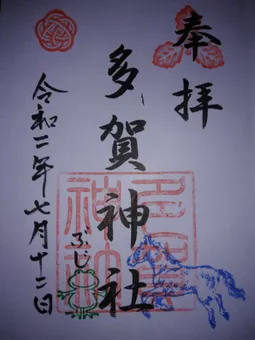 奉拝
多賀神社
令和二年七月十二日
ぶじ
多賀神社